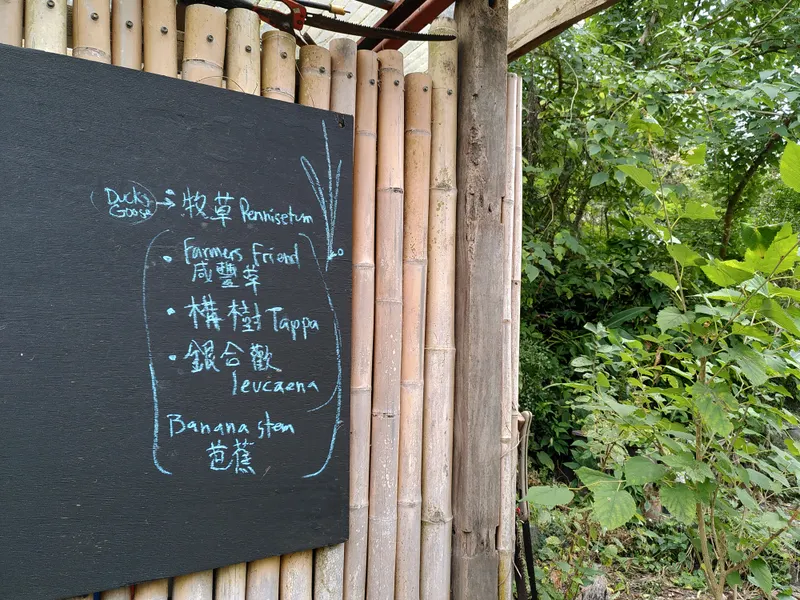 Ducks
Goose
牧草 Pennisetum
• Farmers Friend
咸豐草
• 構樹 Tappa
• 銀合歡
leucaena
Banana stem
芭蕉